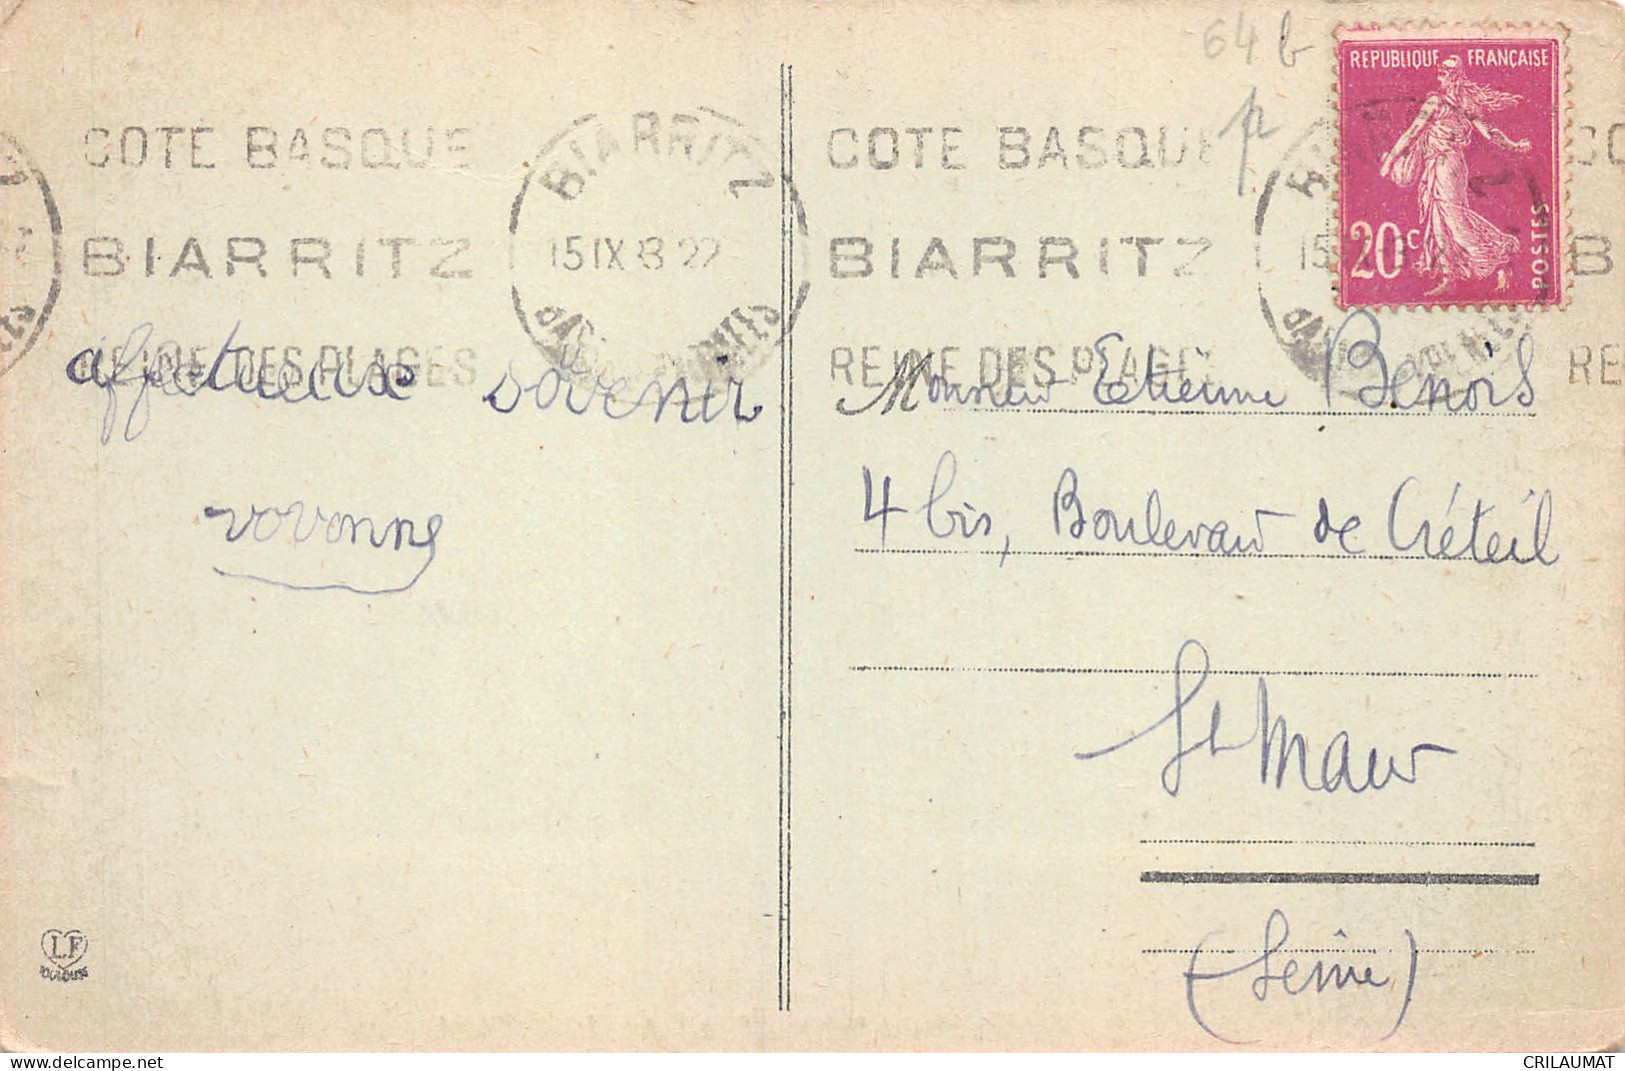 64 b
p
REPUBLIQUE FRANÇAISE
20c
POSTES
COTE BASQUE
BIARRITZ
REINE DES PLAGES
BIARRITZ
15 IX 3 22
COTE BASQUE
BIARRITZ
REINE DES PLAGES
CO
B
RE
affectueux souvenir
vovonne
Monsieur Etienne Benois
4 bis, Boulevard de Créteil
St Maur
(Seine)
LF
TOULOUSE
delcampe.net
CRILAUMAT